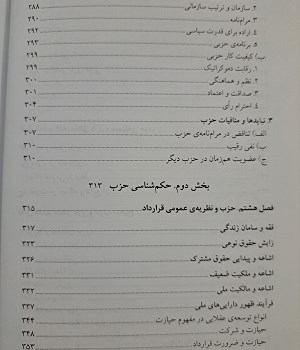 ۲. سازمان و ترتیب سازمانی ........ ۲۸۸
۳. مرام‌نامه ........ ۲۹۰
۴. اراده برای قدرت سیاسی ........ ۲۹۲
۵. برنامه‌ی حزبی ........ ۲۹۳
ب) کیفیت کار حزبی ........ ۲۹۹
۱. رقابت دموکراتیک ........ ۲۹۹
۲. نظم و هماهنگی ........ ۳۰۰
۳. صداقت و اعتماد ........ ۳۰۱
۴. احترام رأی ........ ۳۰۴
۳. نبایدها و منافیات حزب ........ ۳۰۷
الف) تناقض در مرام‌نامه‌ی حزب ........ ۳۰۷
ب) نفی رقیب ........ ۳۱۰
ج) عضویت هم‌زمان در حزب دیگر ........ ۳۱۰
بخش دوم. حکم‌شناسی حزب ۳۱۳
فصل هشتم. حزب و نظریه‌ی عمومی قرارداد ........ ۳۱۵
فقه و سامان زندگی ........ ۳۱۷
زایش حقوق نوعی ........ ۳۲۳
اشاعه و پیدایی حقوق مشترک ........ ۳۲۶
اشاعه و ملکیت ضعیف ........ ۳۳۱
اشاعه و مالکیت ملی ........ ۳۳۲
فرآیند ظهور دارایی‌های ملی ........ ۳۳۷
انواع توسعه‌ی عقلایی در مفهوم حیازت ........ ۳۴۴
حیازت و شرکت ........ ۳۴۸
حیازت و ضرورت قرارداد ........ ۳۵۳